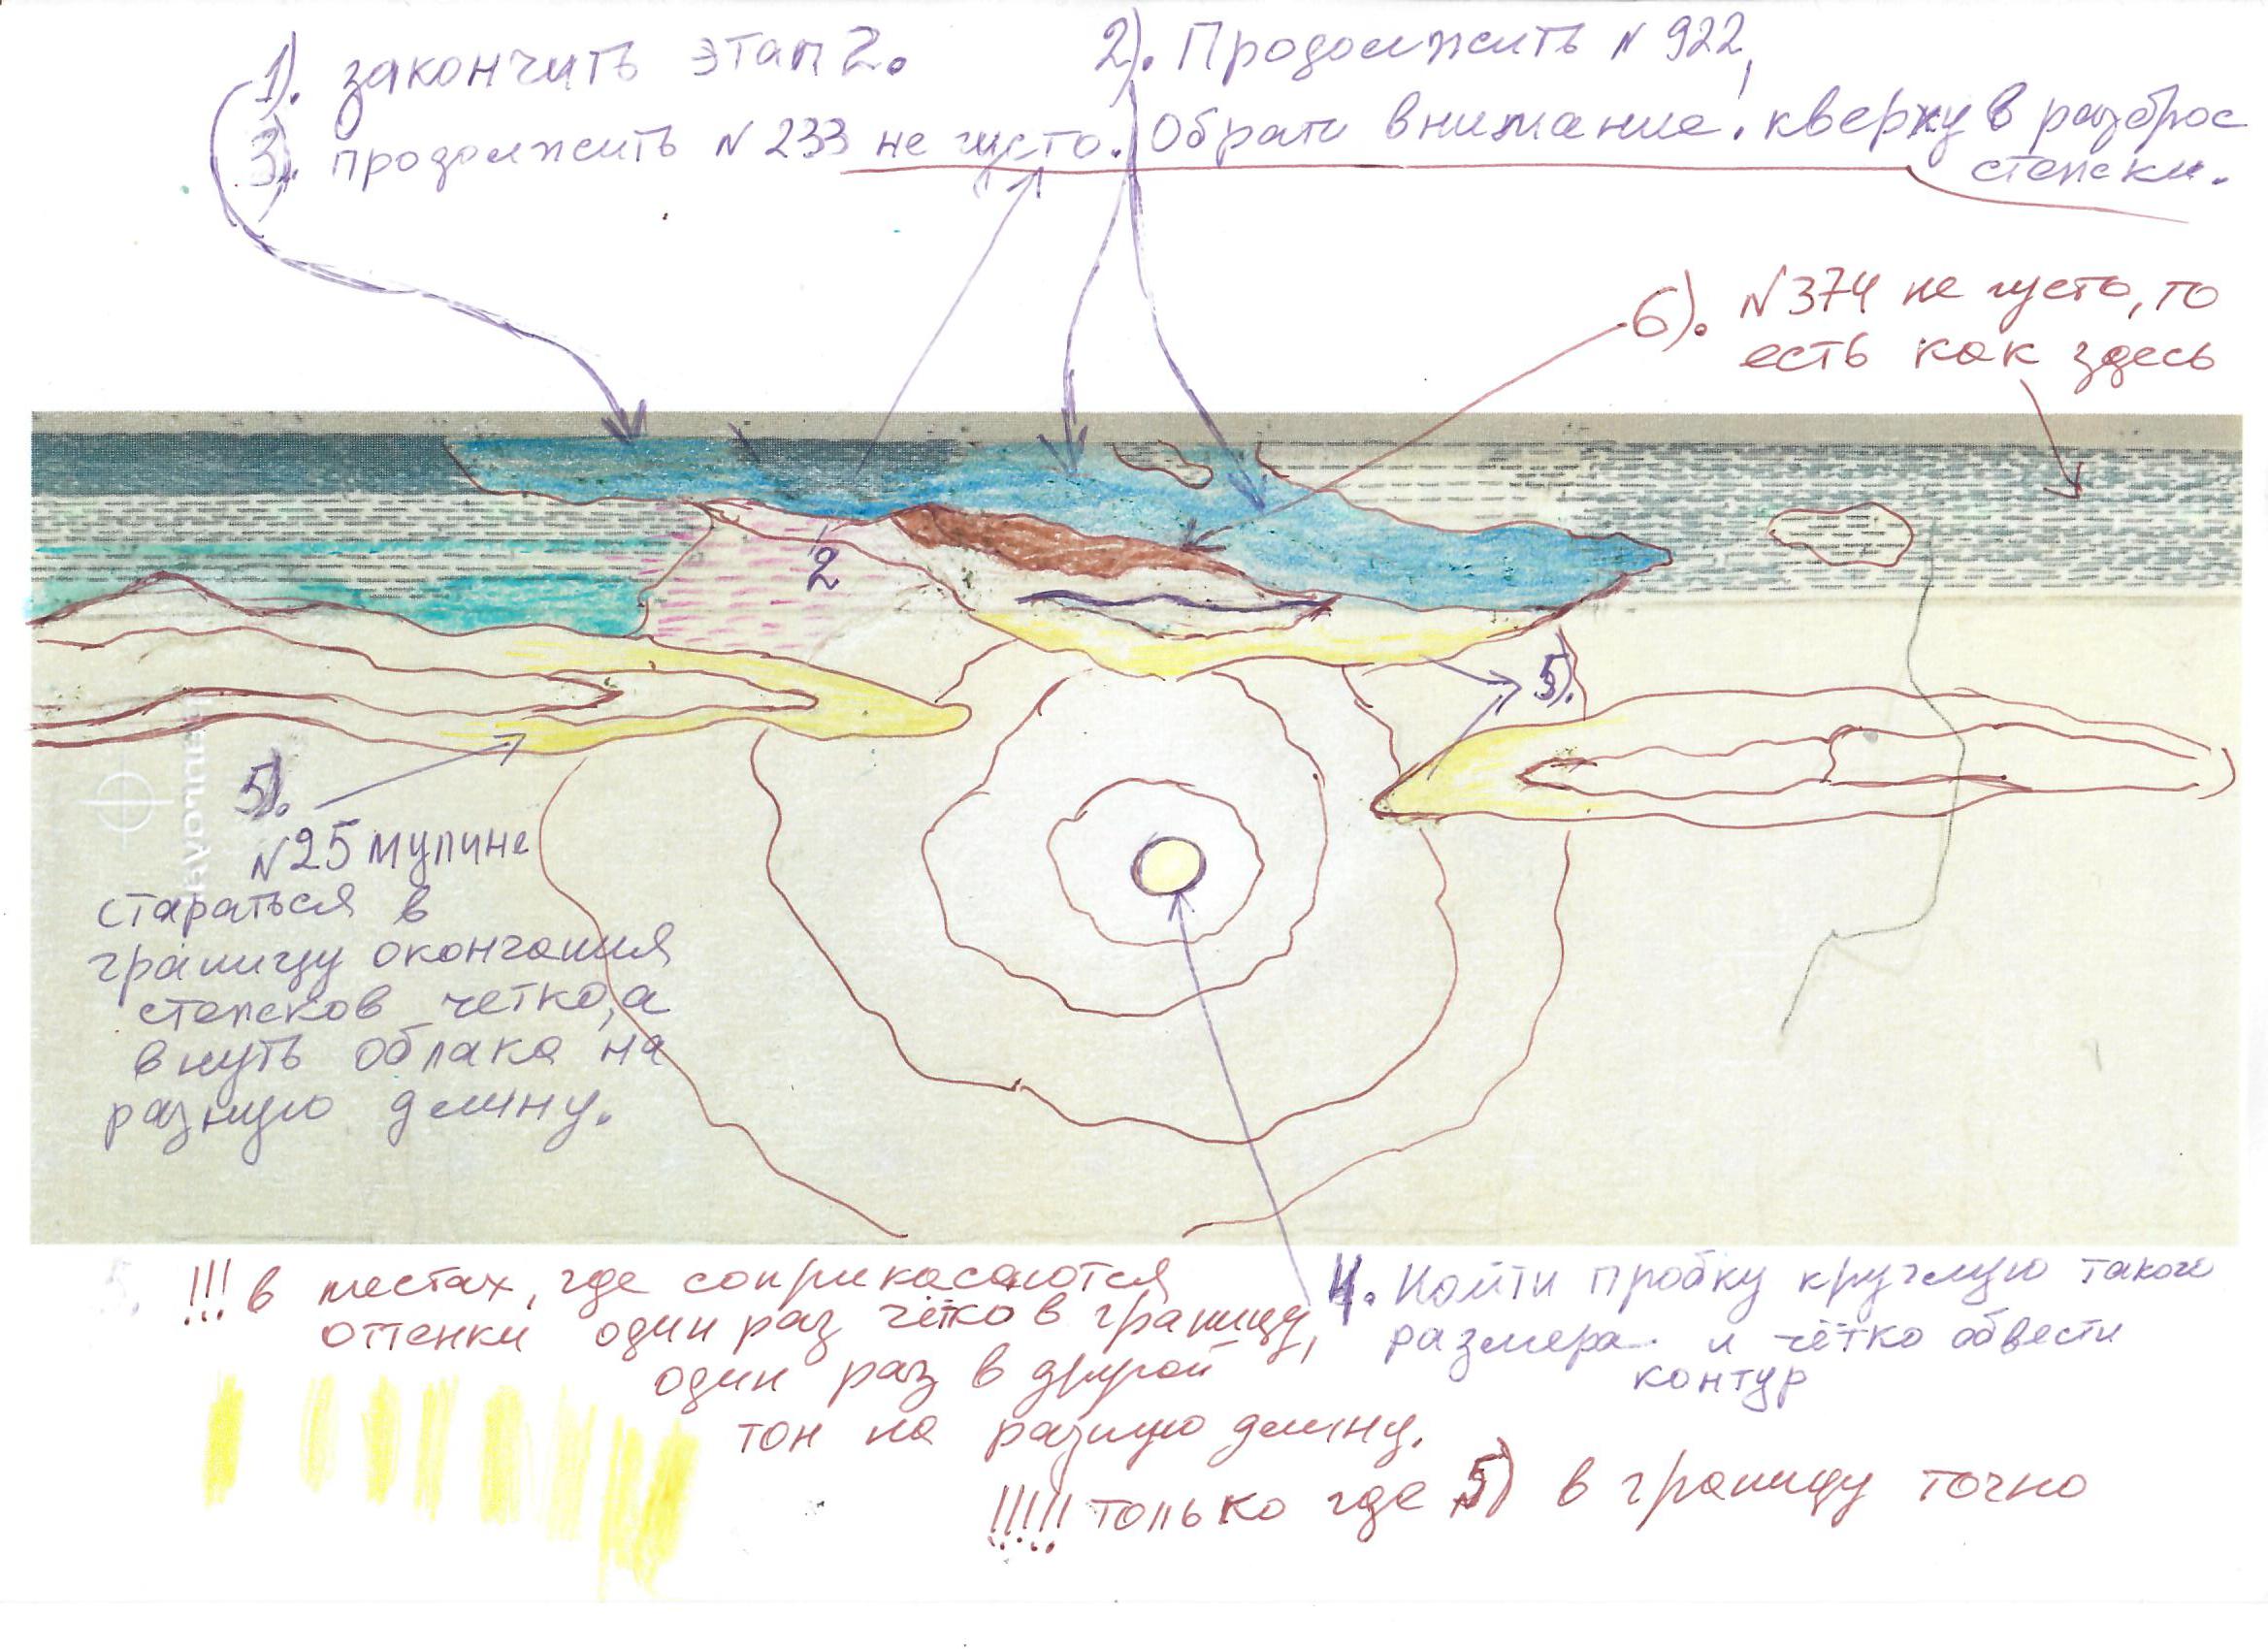 1). закончить этап 2.
2). Продолжить N 922,
3). продолжить N 233 не густо. Обрати внимание! кверху в разброс
стежки.
6). N374 не густо, то
есть как здесь
2
5).
5).
N25 мулине
стараться в
границу окончания
стежков четко, а
внуть облака на
разную длину.
!!! в местах, где соприкасаются
оттенки один раз чётко в границу,
один раз в другой
тон на разную длину.
4. Найти пробку круглую такого
размера и чётко обвести
контур
!!!!! только где 5) в границу точно